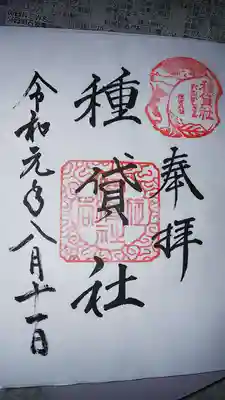 奉拝
種貸社
令和元年八月十一日